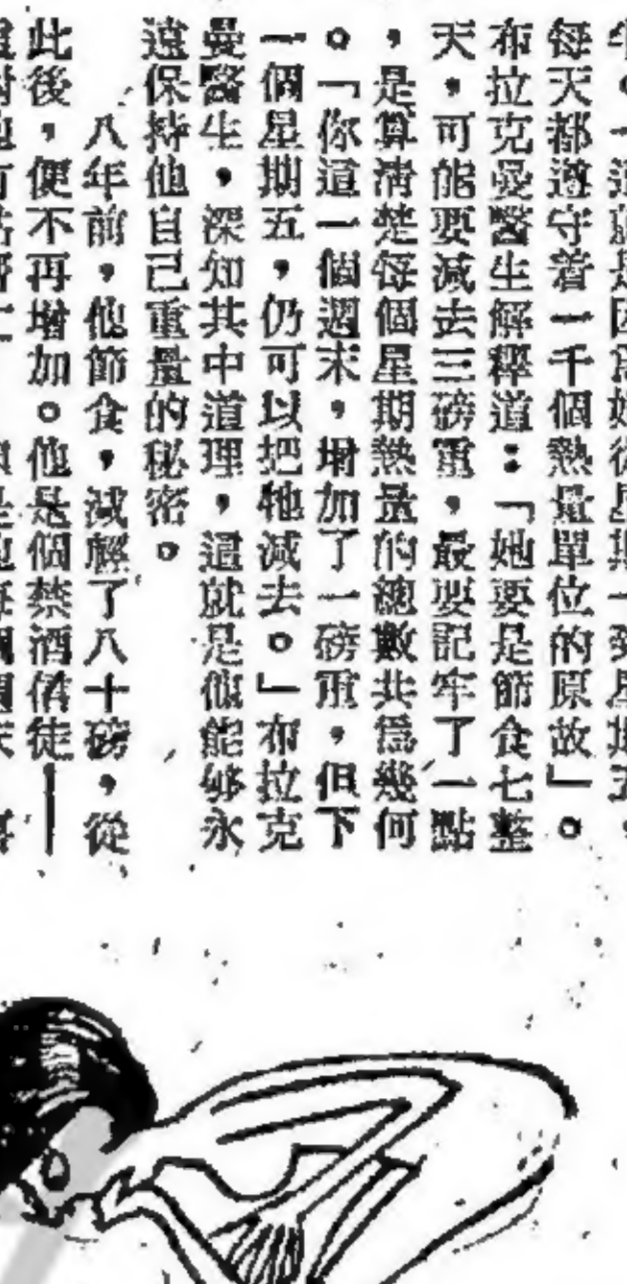 每天都遵守着一千個熱量單位的原故」。
布拉克曼醫生解釋道：「她要是節食七整
天，可能要減去三磅重，最要記牢了一點
，是算清楚每個星期熱量的總數共爲幾何
。「你這一個週末，增加了一磅重，但下
一個星期五，仍可以把牠減去。」布拉克
曼醫生，深知其中道理，這就是他能够永
遠保持他自己重量的秘密。
八年前，他節食，減輕了八十磅，從
此後，便不再增加。他是個禁酒信徒——